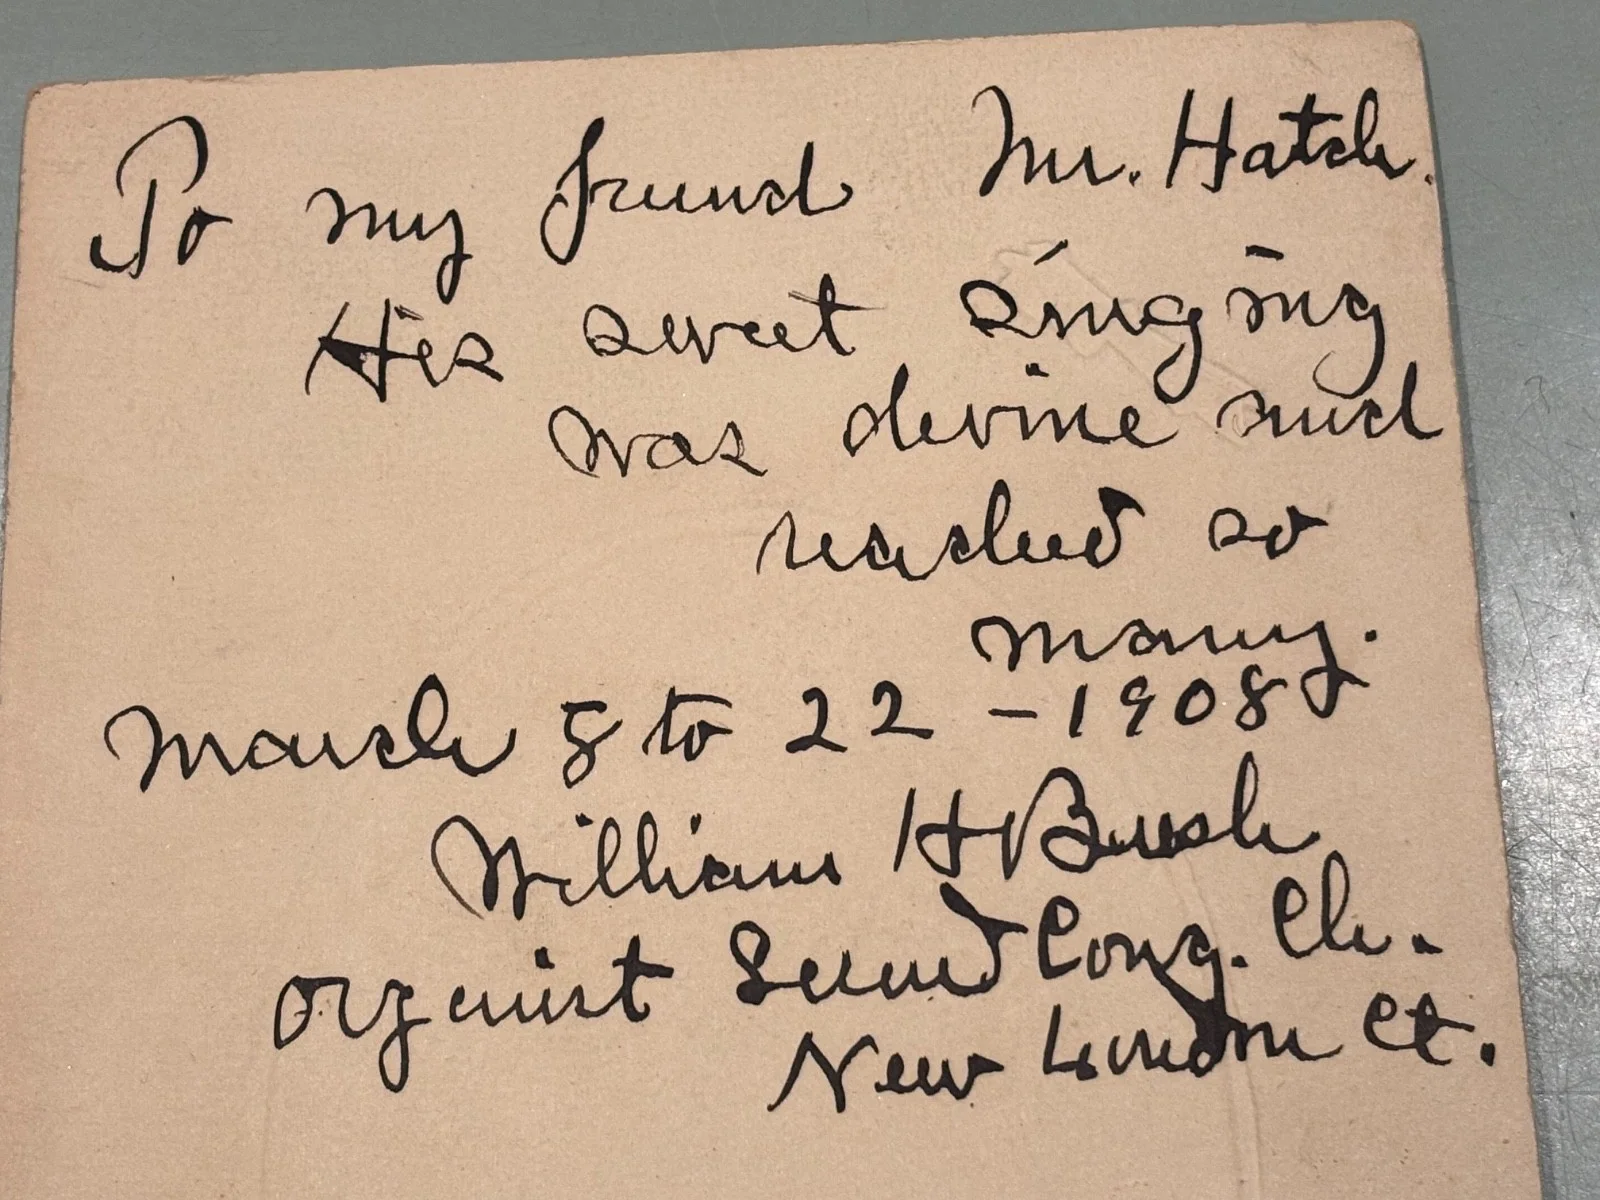 To my friend Mr. Hatch.
His sweet singing
was devine and
reached so
many.
March 8 to 22 - 1908
William H Bush
organist Second Cong. Ch.
New London Ct.